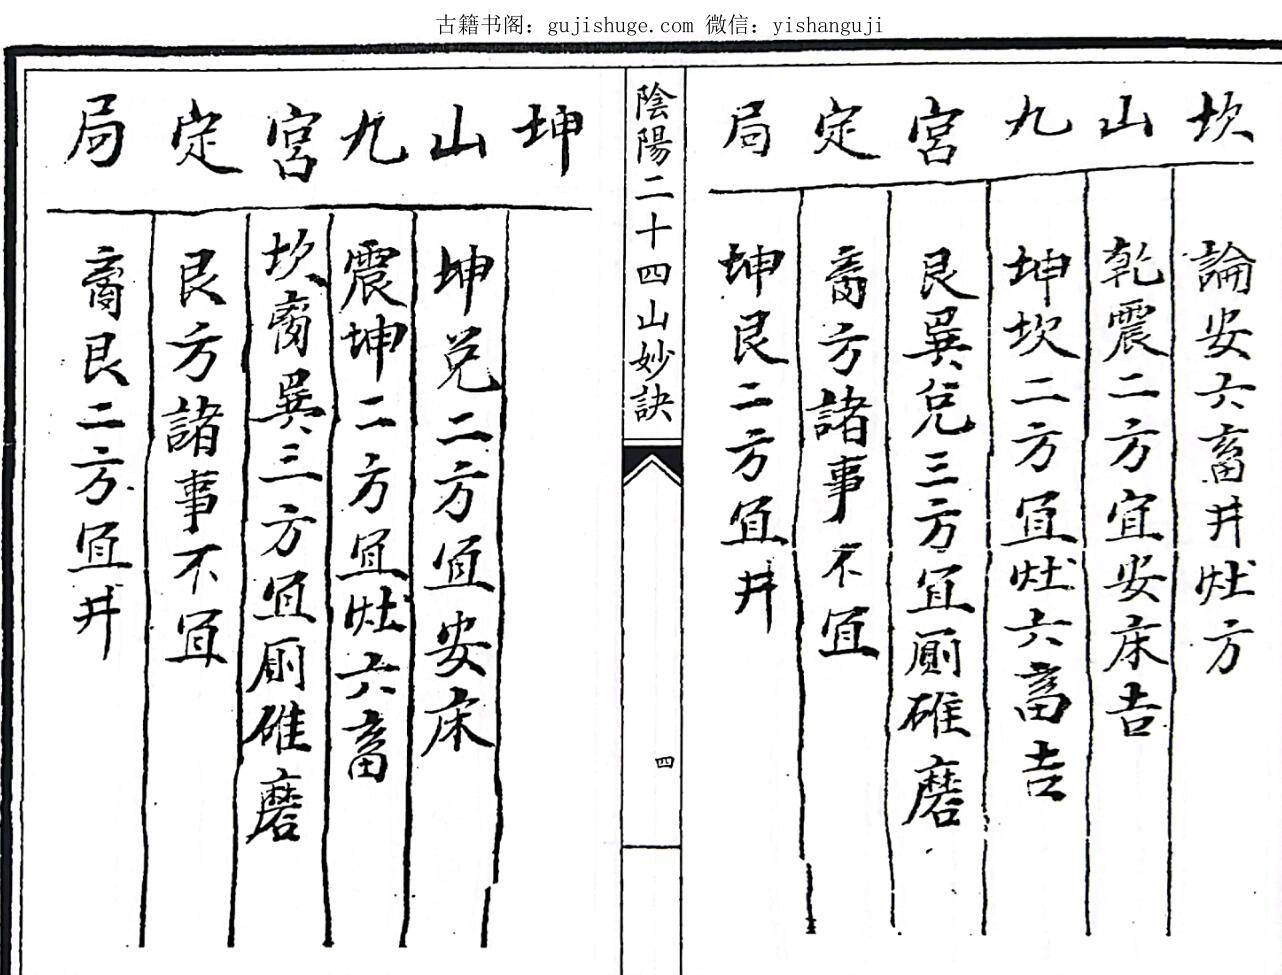 古籍书阁：gujishuge.com 微信：yishanguji
坎山九宮定局
論安六畜井灶方
乾震二方宜安床吉
坤坎二方冝灶六畜吉
艮巽兌三方冝厠碓磨
离方諸事不冝
坤艮二方冝井
陰陽二十四山妙訣
四
坤山九宮定局
坤兌二方冝安床
震坤二方冝灶六畜
坎离巽三方冝厠碓磨
艮方諸事不冝
离艮二方冝井